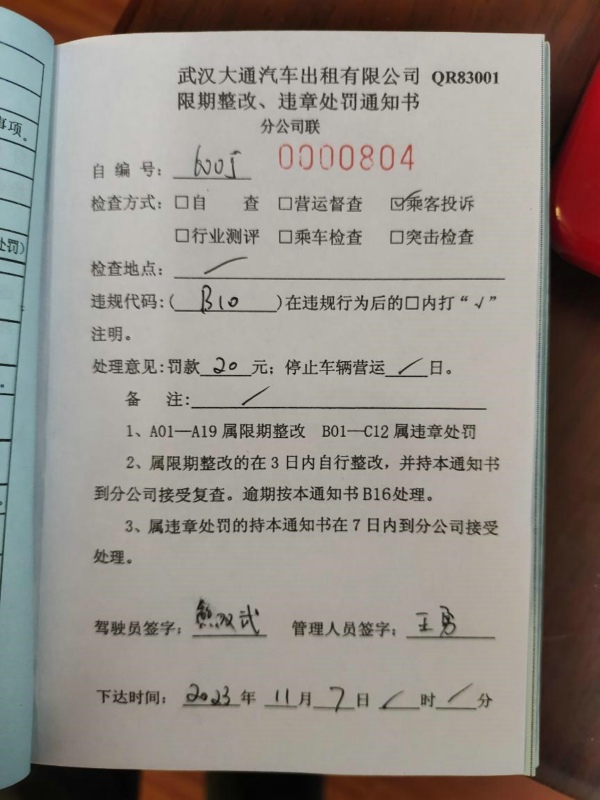 武汉大通汽车出租有限公司 QR83001
限期整改、违章处罚通知书
分公司联
自编号: 6005 0000804
检查方式: □自 查 □营运督查 ☑乘客投诉
□行业测评 □乘车检查 □突击检查
检查地点: /
违规代码:( B10 )在违规行为后的□内打“√”
注明。
处理意见:罚款 20 元; 停止车辆营运 / 日。
备 注: /
1、A01—A19属限期整改 B01—C12属违章处罚
2、属限期整改的在3日内自行整改, 并持本通知书
到分公司接受复查。逾期按本通知书B16处理。
3、属违章处罚的持本通知书在7日内到分公司接受
处理。
驾驶员签字: 熊双武 管理人员签字: 王勇
下达时间: 2023 年 11 月 7 日 / 时 / 分
事项。
处罚)